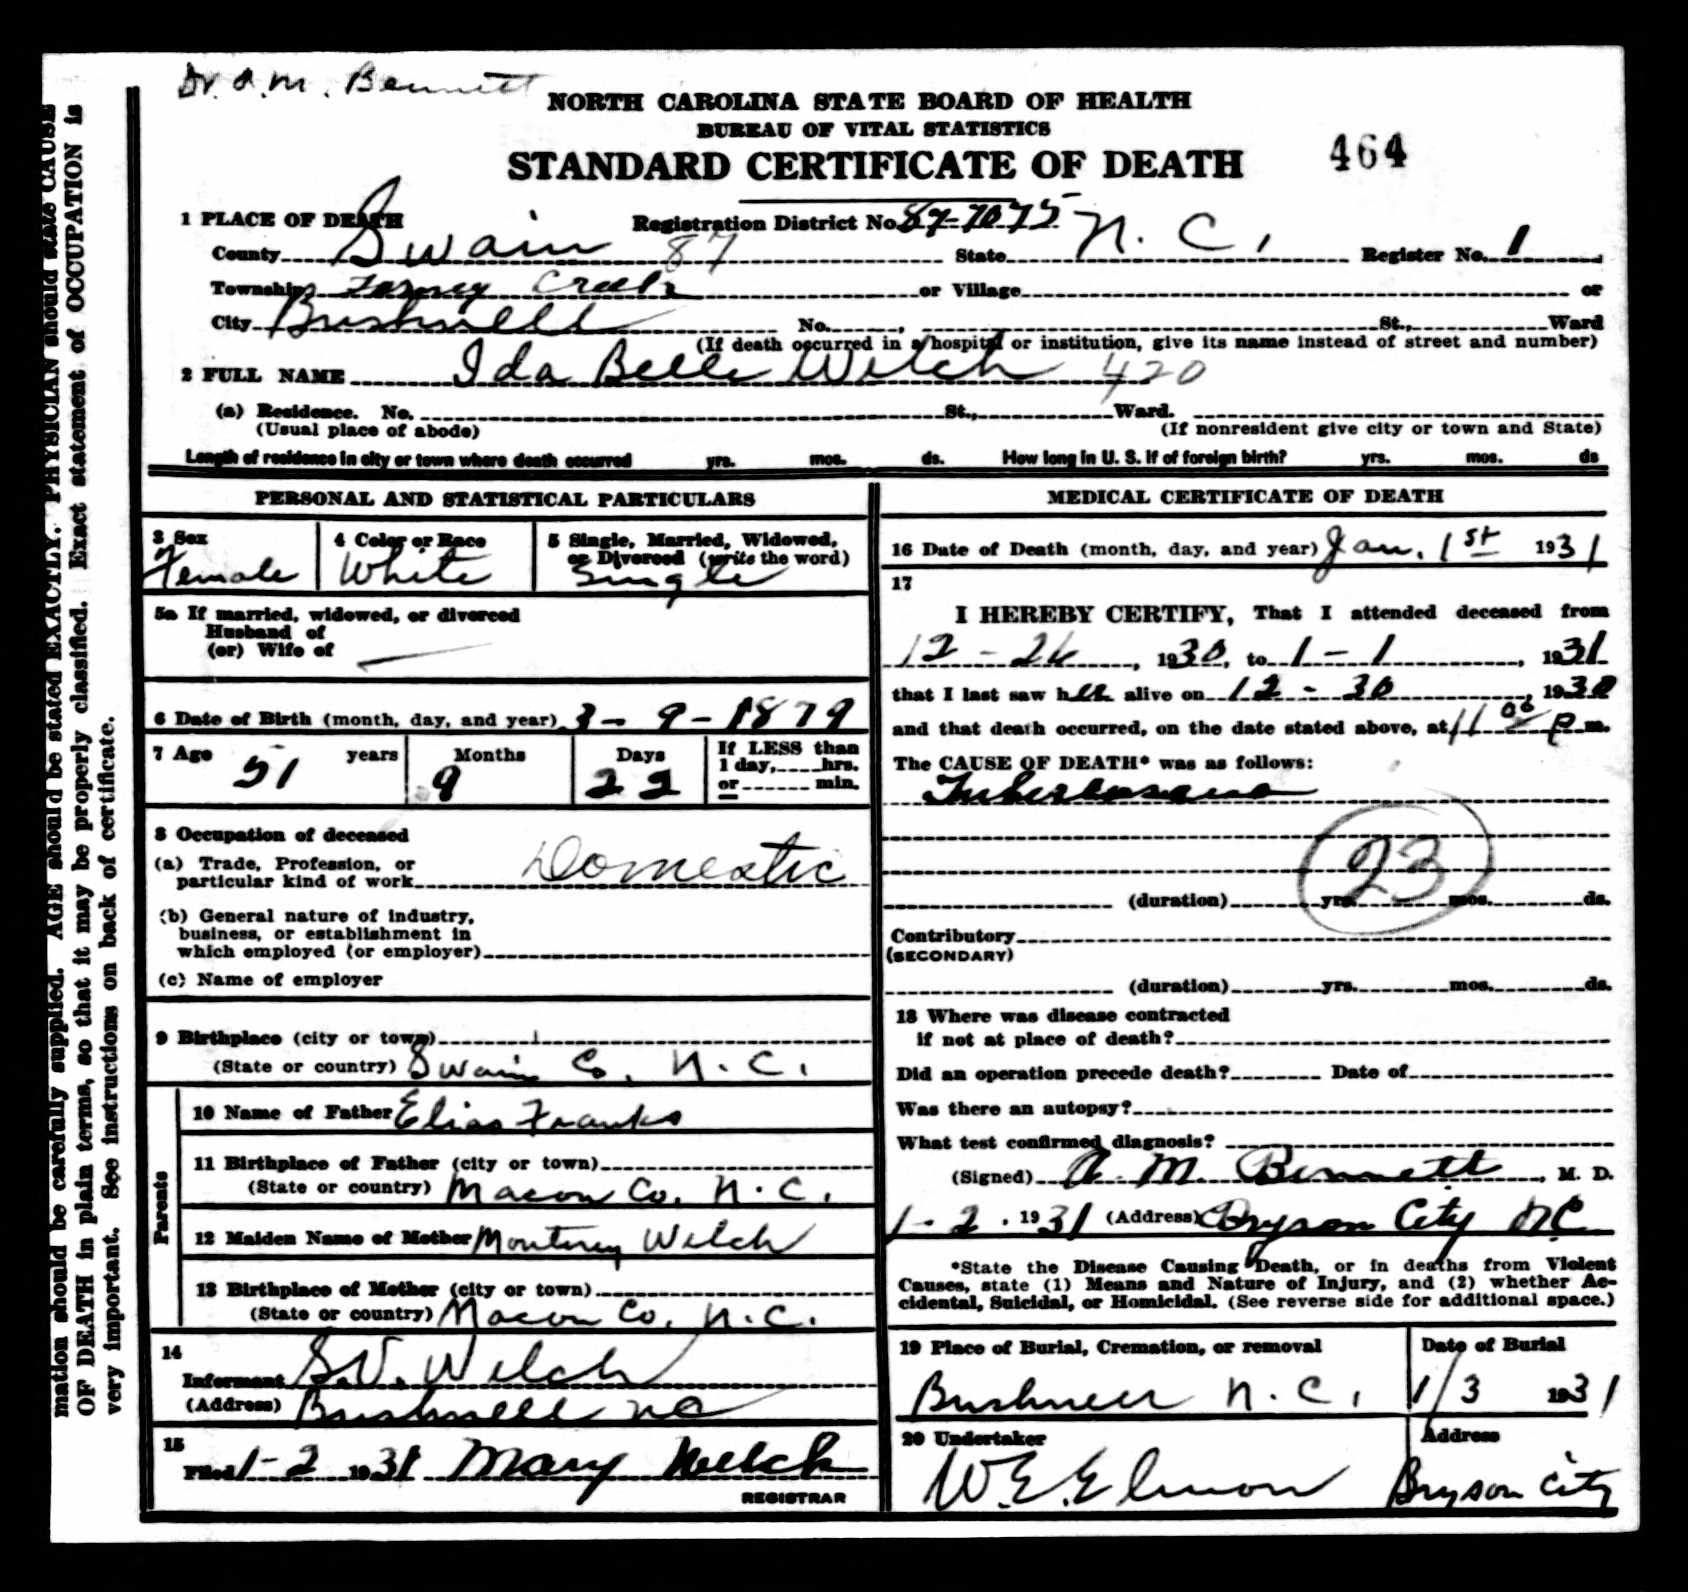 Dr. A.M. Bennett
NORTH CAROLINA STATE BOARD OF HEALTH
BUREAU OF VITAL STATISTICS
STANDARD CERTIFICATE OF DEATH
464
1 PLACE OF DEATH Registration District No. 87-7075
County Swain 87 State N. C. Register No. 1
Township Forney Creek or Village or
City Bushnell No. , St., Ward
(If death occurred in a hospital or institution, give its name instead of street and number)
2 FULL NAME Ida Belle Welch 420
(a) Residence. No. St., Ward.
(Usual place of abode) (If nonresident give city or town and State)
Length of residence in city or town where death occurred yrs. mos. ds. How long in U. S. if of foreign birth? yrs. mos. ds
PERSONAL AND STATISTICAL PARTICULARS
3 Sex 4 Color or Race 5 Single, Married, Widowed,
or Divorced (write the word)
Female White Single
5a If married, widowed, or divorced
Husband of
(or) Wife of
6 Date of Birth (month, day, and year) 3-9-1879
7 Age 51 years Months 9 Days 22 If LESS than
1 day, hrs.
or min.
8 Occupation of deceased
(a) Trade, Profession, or
particular kind of work Domestic
(b) General nature of industry,
business, or establishment in
which employed (or employer)
(c) Name of employer
9 Birthplace (city or town)
(State or country) Swain Co. N.C.
Parents
10 Name of Father Elias Franks
11 Birthplace of Father (city or town)
(State or country) Macon Co. N.C.
12 Maiden Name of Mother Monterey Welch
13 Birthplace of Mother (city or town)
(State or country) Macon Co. N.C.
14
Informant S.V. Welch
(Address) Bushnell NC
15
Filed 1-2 1931 Mary Welch
REGISTRAR
MEDICAL CERTIFICATE OF DEATH
16 Date of Death (month, day, and year) Jan. 1st 1931
17
I HEREBY CERTIFY, That I attended deceased from
12-26, 1930, to 1-1, 1931
that I last saw her alive on 12-30, 1930
and that death occurred, on the date stated above, at 11 00 P m.
The CAUSE OF DEATH* was as follows:
Tuberculosis
23
(duration) yrs. mos. ds.
Contributory
(SECONDARY)
(duration) yrs. mos. ds.
18 Where was disease contracted
if not at place of death?
Did an operation precede death? Date of
Was there an autopsy?
What test confirmed diagnosis?
(Signed) A. M. Bennett, M. D.
1-2, 1931 (Address) Bryson City NC
*State the Disease Causing Death, or in deaths from Violent
Causes, state (1) Means and Nature of Injury, and (2) whether Ac-
cidental, Suicidal, or Homicidal. (See reverse side for additional space.)
19 Place of Burial, Cremation, or removal Date of Burial
Bushnell N.C. 1/3 1931
20 Undertaker Address
W.E. Elmore Bryson City
mation should be carefully supplied. AGE should be stated EXACTLY. PHYSICIAN should state CAUSE
OF DEATH in plain terms, so that it may be properly classified. Exact statement of OCCUPATION is
very important. See instructions on back of certificate.